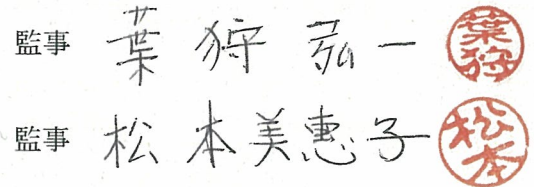 監事 葉狩弘一 葉狩
監事 松本美惠子 松本